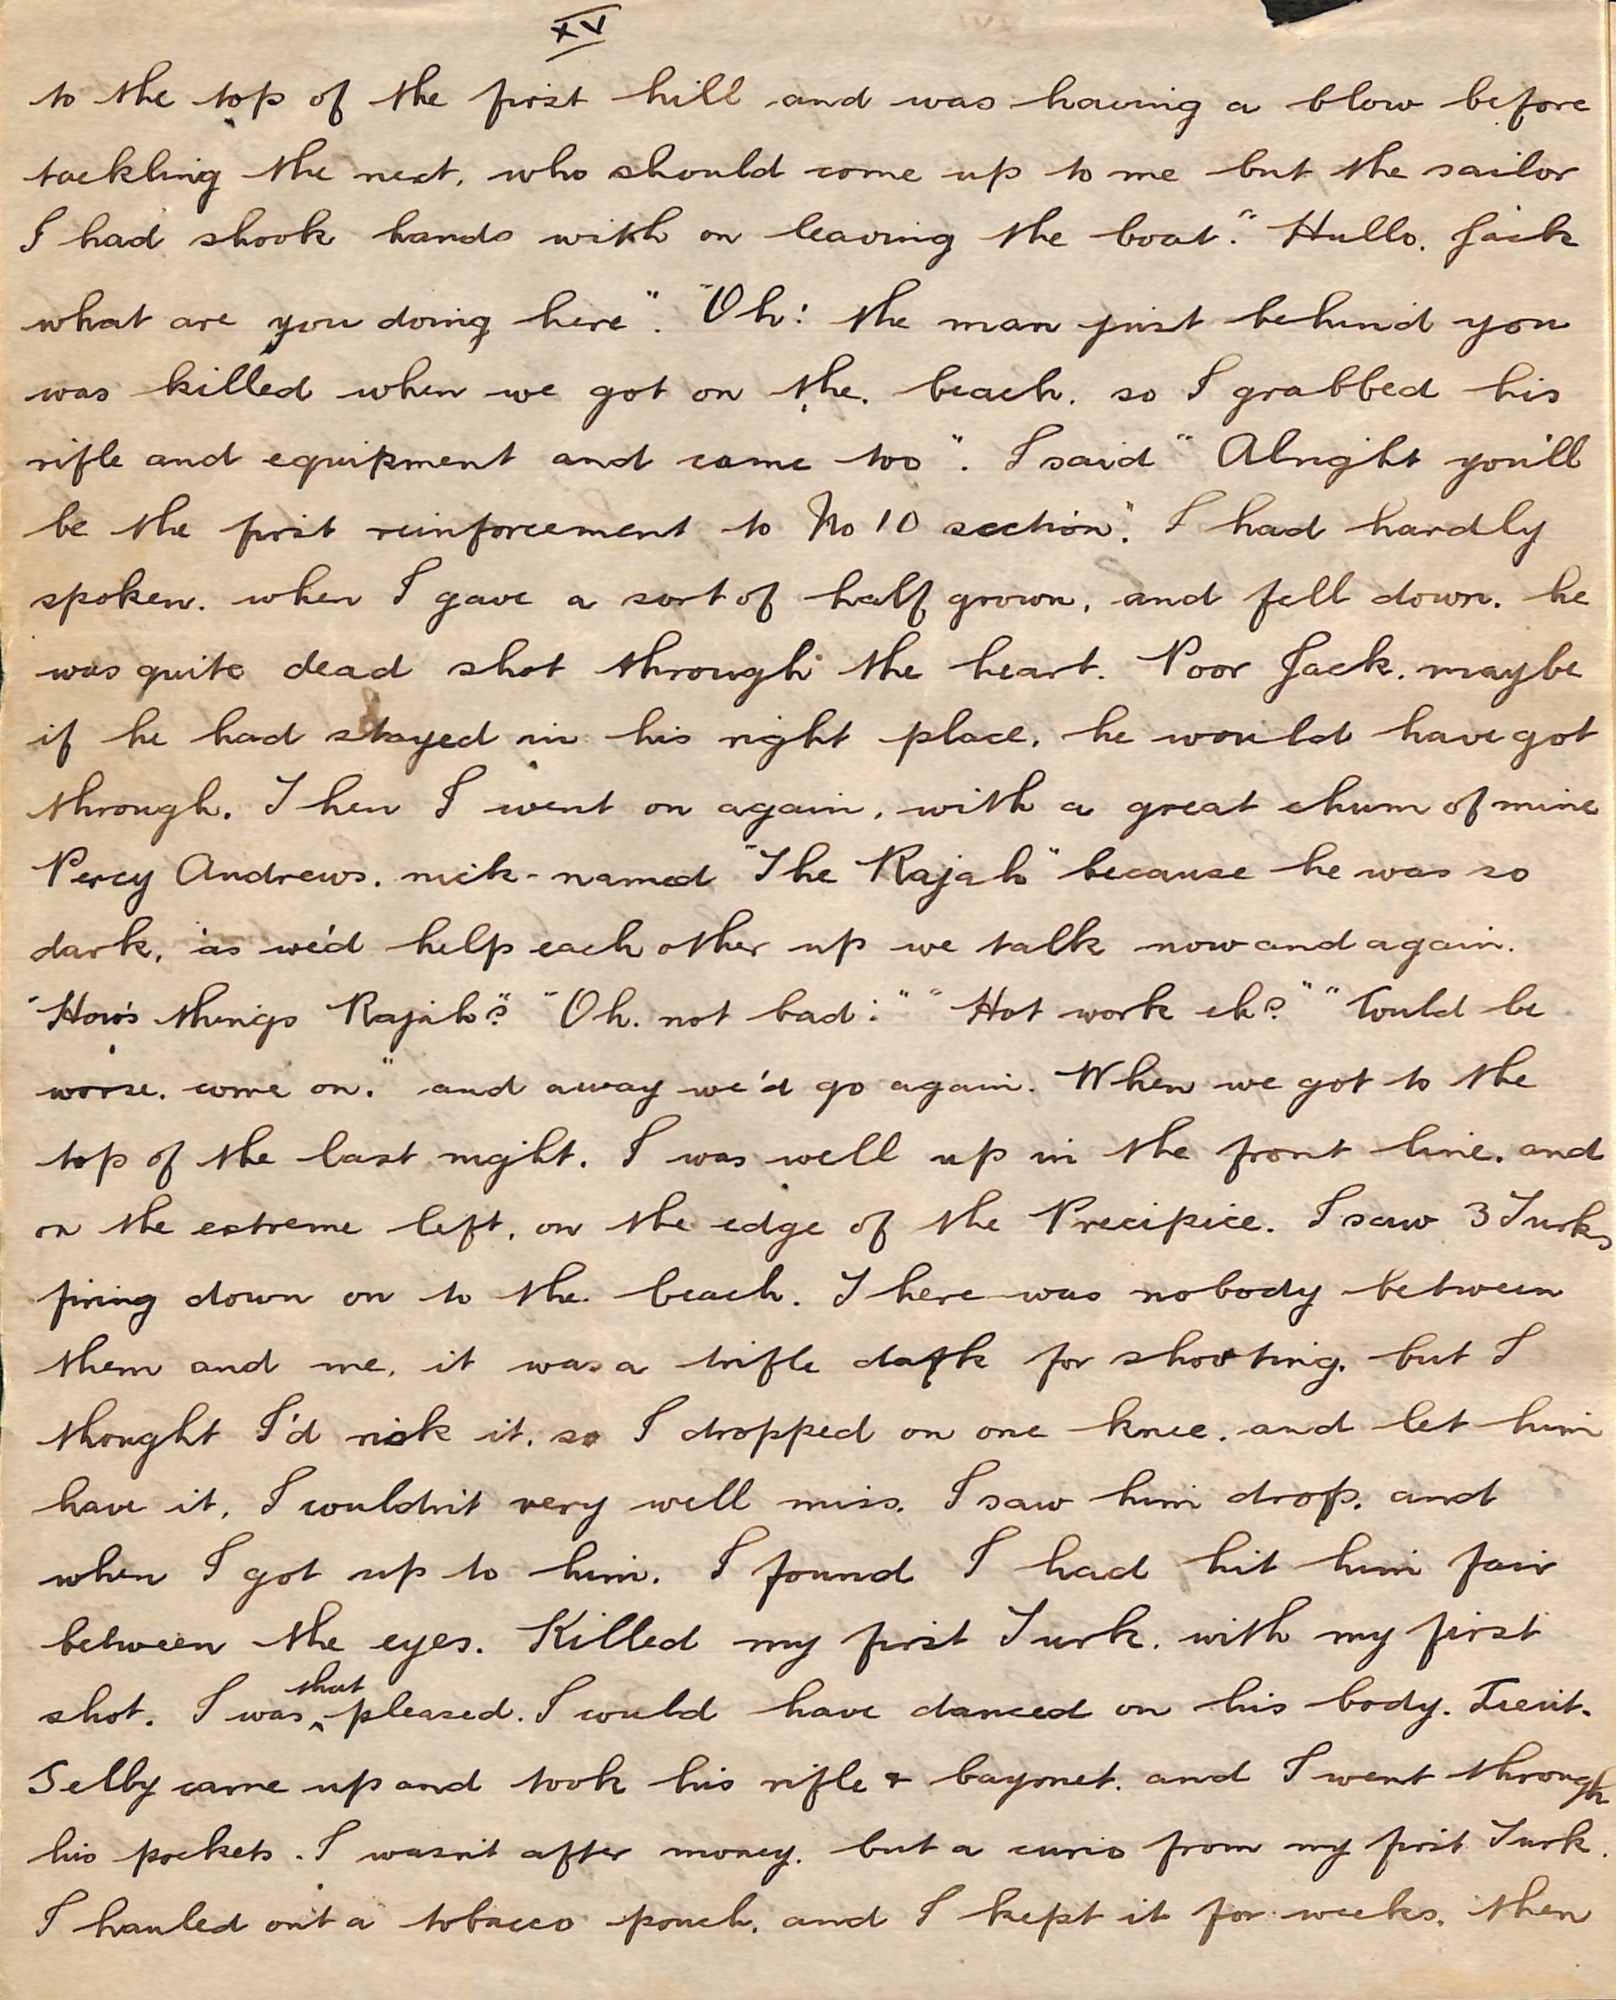 XV
to the top of the first hill and was having a blow before
tackling the next. who should come up to me but the sailor
I had shook hands with on leaving the boat." Hullo. Jack
what are you doing here". "Oh! the man just behind you
was killed when we got on the. beach. so I grabbed his
rifle and equipment and came too". I said " Alright you'll
be the first reinforcement to No 10 section". I had hardly
spoken. when I gave a sort of half grown, and fell down. he
was quite dead shot through the heart. Poor Jack. maybe
if he had stayed in his right place, he would have got
through. Then I went on again, with a great chum of mine
Percy Andrews. nick-named "The Rajah" because he was so
dark, as we'd help each other up we talk now and again.
"How's things Rajah"? "Oh. not bad!" "Hot work eh?" "Could be
worse. come on." and away we'd go again. When we got to the
top of the last night. I was well up in the front line. and
on the extreme left, on the edge of the Precipice. I saw 3 Turks
firing down on to the. beach. There was nobody between
them and me, it was a trifle dark for shooting. but I
thought I'd risk it. so I dropped on one knee. and let him
have it, I couldn't very well miss. I saw him drop. and
when I got up to him. I found I had hit him fair
between the eyes. Killed my first Turk. with my first
shot. I was that pleased. I could have danced on his body. Lieut.
Selby came up and took his rifle & bayonet. and I went through
his pockets. I wasn't after money. but a curio from my first Turk.
I hauled out a tobacco pouch. and I kept it for weeks. then